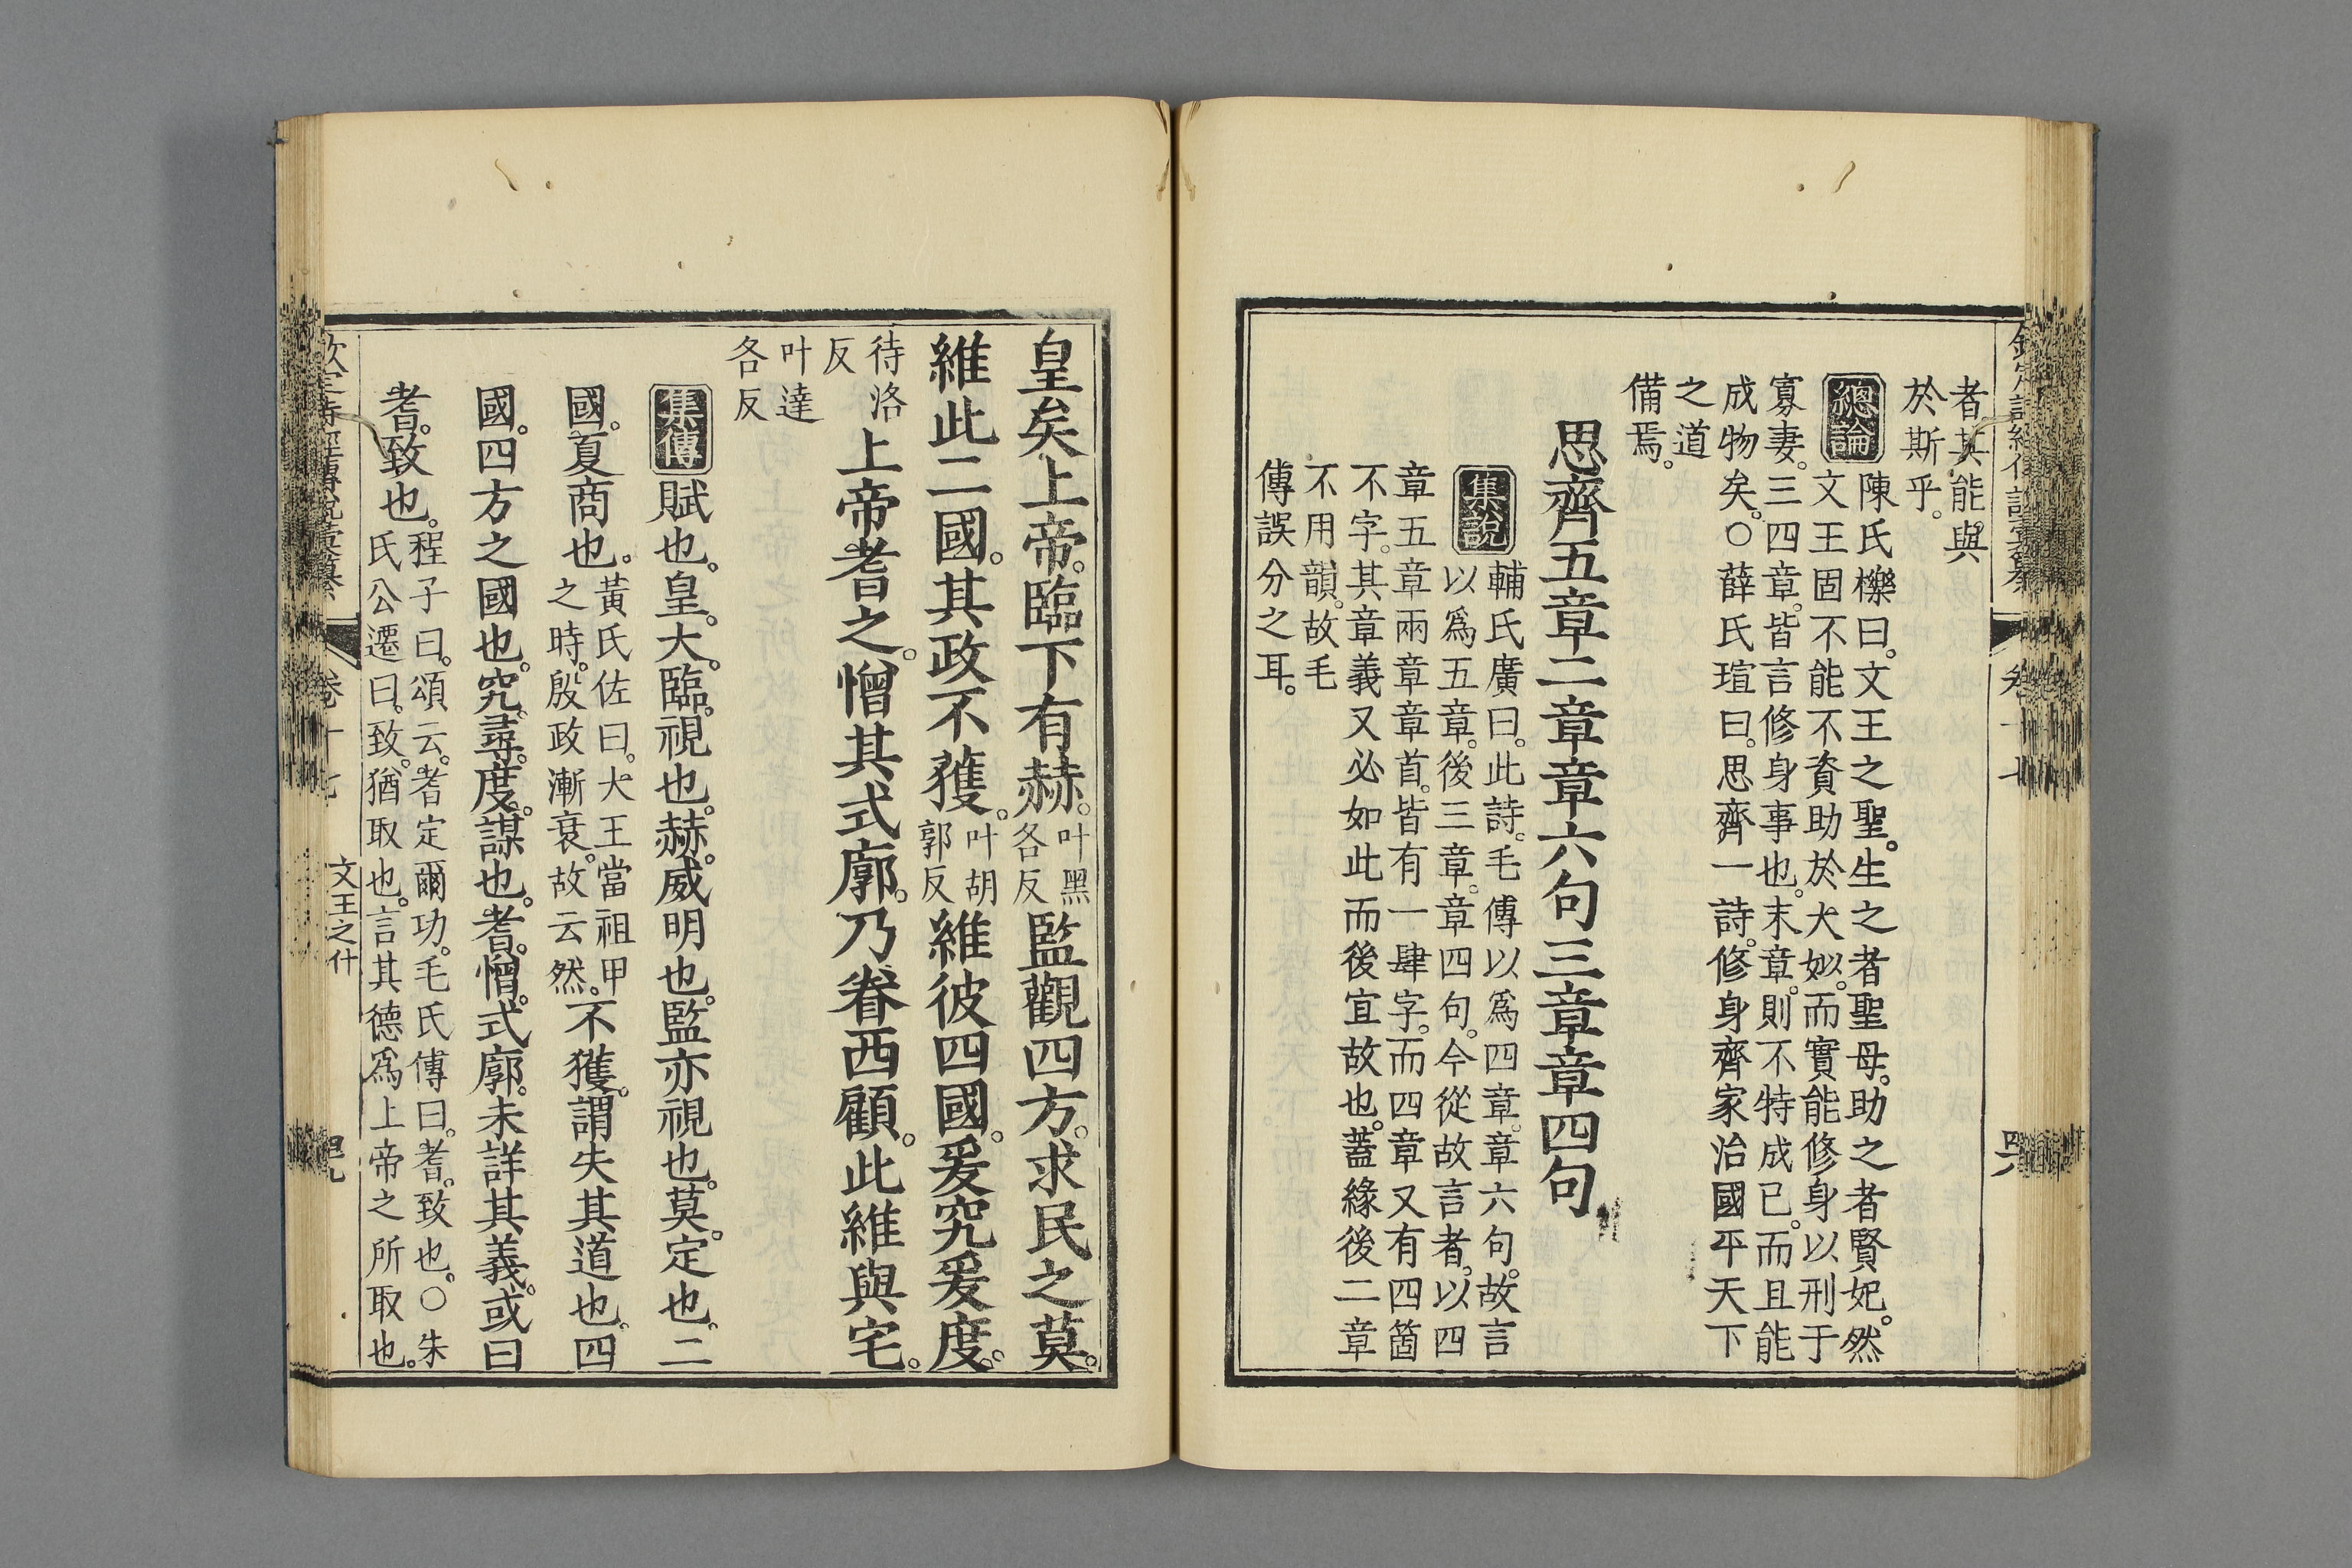 者其能與
於斯乎。
總論
陳氏櫟曰。文王之聖。生之者聖母。助之者賢妃。然
文王固不能不資助於大姒。而實能修身以刑于
寡妻。三四章。皆言修身事也。末章。則不特成已。而且能
成物矣。○薛氏瑄曰。思齊一詩。修身齊家治國平天下
之道
備焉。
思齊五章二章章六句三章章四句
集說
輔氏廣曰。此詩。毛傳以爲四章。章六句。故言
以爲五章。後三章。章四句。今從故言者。以四
章五章兩章章首。皆有一肆字。而四章又有四箇
不字。其章義又必如此而後宜故也。蓋緣後二章
不用韻。故毛
傳誤分之耳。
皇矣上帝。臨下有赫。叶黑各反監觀四方。求民之莫。
維此二國。其政不獲。叶胡郭反維彼四國。爰究爰度。
待洛反上帝耆之。憎其式廓。乃眷西顧。此維與宅。
叶達各反
集傳
賦也。皇。大。臨。視也。赫。威明也。監亦視也。莫。定也。二
國。夏商也。黃氏佐曰。大王當祖甲之時。殷政漸衰。故云然。不獲。謂失其道也。四
國。四方之國也。究。尋。度。謀也。耆。憎。式廓。未詳其義。或曰
耆。致也。程子曰。頌云。耆定爾功。毛氏傳曰。耆。致也。○朱
氏公遷曰。致。猶取也。言其德爲上帝之所取也。
卷十七
文王之什